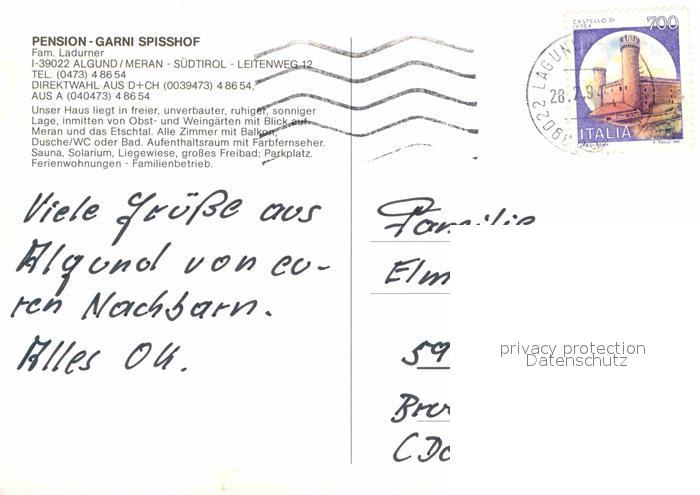 PENSION - GARNI SPISSHOF
Fam. Ladurner
I-39022 ALGUND/MERAN - SÜDTIROL - LEITENWEG 12
TEL. (0473) 4 86 54
DIREKTWAHL AUS D+CH (0039473) 4 86 54,
AUS A (040473) 4 86 54
Unser Haus liegt in freier, unverbauter, ruhiger, sonniger
Lage, inmitten von Obst- und Weingärten mit Blick auf
Meran und das Etschtal. Alle Zimmer mit Balkon,
Dusche/WC oder Bad. Aufenthaltsraum mit Farbfernseher.
Sauna, Solarium, Liegewiese, großes Freibad; Parkplatz.
Ferienwohnungen - Familienbetrieb.
Viele Grüße aus
Algund von eu-
ren Nachbarn.
Alles OK.
CASTELLO DI
IVREA
700
ITALIA
39022 LAGUN
28.7.9
Familie
Elm
59
privacy protection
Datenschutz